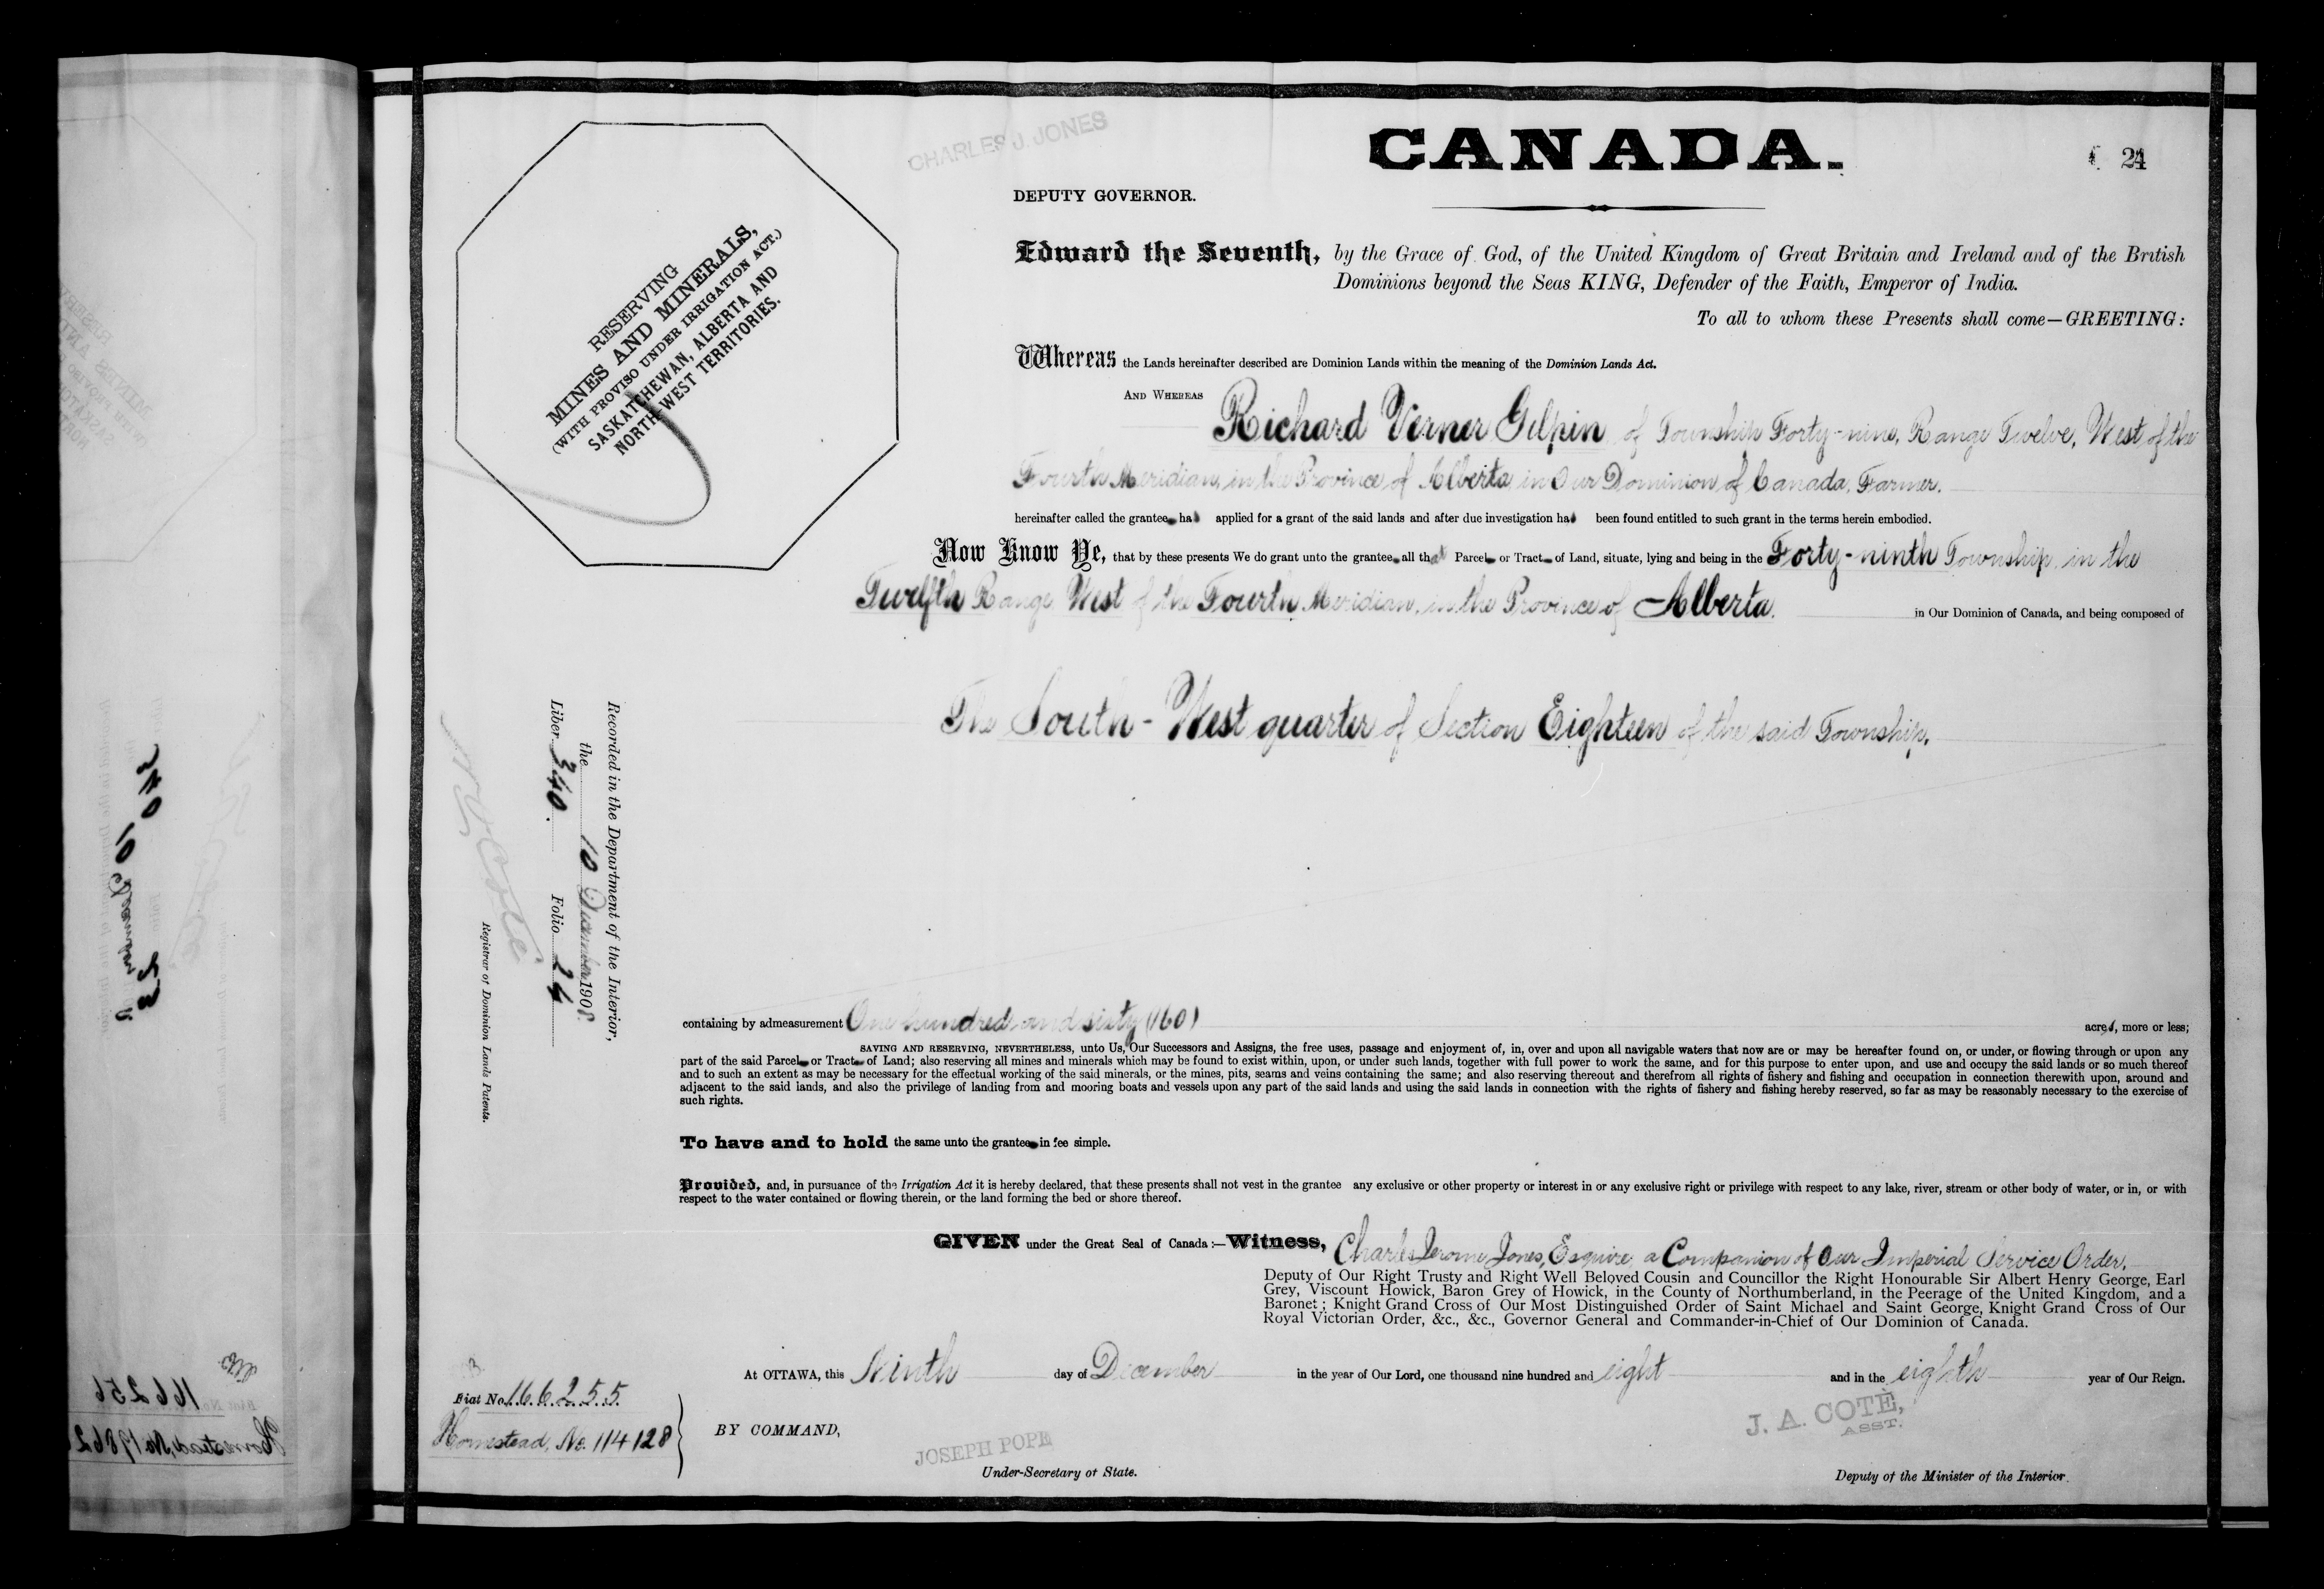 CHARLES J. JONES
CANADA.
24
DEPUTY GOVERNOR.
RESERVING
MINES AND MINERALS,
(WITH PROVISO UNDER IRRIGATION ACT.)
SASKATCHEWAN, ALBERTA AND
NORTH WEST TERRITORIES.
Edward the Seventh, by the Grace of God, of the United Kingdom of Great Britain and Ireland and of the British
Dominions beyond the Seas KING, Defender of the Faith, Emperor of India.
To all to whom these Presents shall come—GREETING:
Whereas the Lands hereinafter described are Dominion Lands within the meaning of the Dominion Lands Act.
AND WHEREAS Richard Verner Gilpin of Township Forty-nine, Range Twelve, West of the
Fourth Meridian, in the Province of Alberta in Our Dominion of Canada, Farmer.
hereinafter called the grantee has applied for a grant of the said lands and after due investigation has been found entitled to such grant in the terms herein embodied.
Now Know Ye, that by these presents We do grant unto the grantee all that Parcel or Tract of Land, situate, lying and being in the Forty-ninth Township, in the
Twelfth Range West of the Fourth Meridian, in the Province of Alberta. in Our Dominion of Canada, and being composed of
The South-West quarter of Section Eighteen of the said Township.
Recorded in the Department of the Interior,
the 10 December 1908
Liber 340. Folio 24
N O Coté
Registrar of Dominion Lands Patents.
containing by admeasurement One hundred and sixty (160) acres, more or less;
SAVING AND RESERVING, NEVERTHELESS, unto Us, Our Successors and Assigns, the free uses, passage and enjoyment of, in, over and upon all navigable waters that now are or may be hereafter found on, or under, or flowing through or upon any
part of the said Parcel or Tract of Land; also reserving all mines and minerals which may be found to exist within, upon, or under such lands, together with full power to work the same, and for this purpose to enter upon, and use and occupy the said lands or so much thereof
and to such an extent as may be necessary for the effectual working of the said minerals, or the mines, pits, seams and veins containing the same; and also reserving thereout and therefrom all rights of fishery and fishing and occupation in connection therewith upon, around and
adjacent to the said lands, and also the privilege of landing from and mooring boats and vessels upon any part of the said lands and using the said lands in connection with the rights of fishery and fishing hereby reserved, so far as may be reasonably necessary to the exercise of
such rights.
To have and to hold the same unto the grantee in fee simple.
Provided, and, in pursuance of the Irrigation Act it is hereby declared, that these presents shall not vest in the grantee any exclusive or other property or interest in or any exclusive right or privilege with respect to any lake, river, stream or other body of water, or in, or with
respect to the water contained or flowing therein, or the land forming the bed or shore thereof.
GIVEN under the Great Seal of Canada:—Witness, Charles Jerome Jones, Esquire, a Companion of Our Imperial Service Order,
Deputy of Our Right Trusty and Right Well Beloved Cousin and Councillor the Right Honourable Sir Albert Henry George, Earl
Grey, Viscount Howick, Baron Grey of Howick, in the County of Northumberland, in the Peerage of the United Kingdom, and a
Baronet; Knight Grand Cross of Our Most Distinguished Order of Saint Michael and Saint George, Knight Grand Cross of Our
Royal Victorian Order, &c., &c., Governor General and Commander-in-Chief of Our Dominion of Canada.
At OTTAWA, this Ninth day of December in the year of Our Lord, one thousand nine hundred and eight and in the eighth year of Our Reign.
Fiat No. 166255
Homestead, No. 114128
BY COMMAND,
JOSEPH POPE
Under-Secretary of State.
J. A. COTÈ,
ASST.
Deputy of the Minister of the Interior.
340
10 December
23
166256
Homestead, No 19862